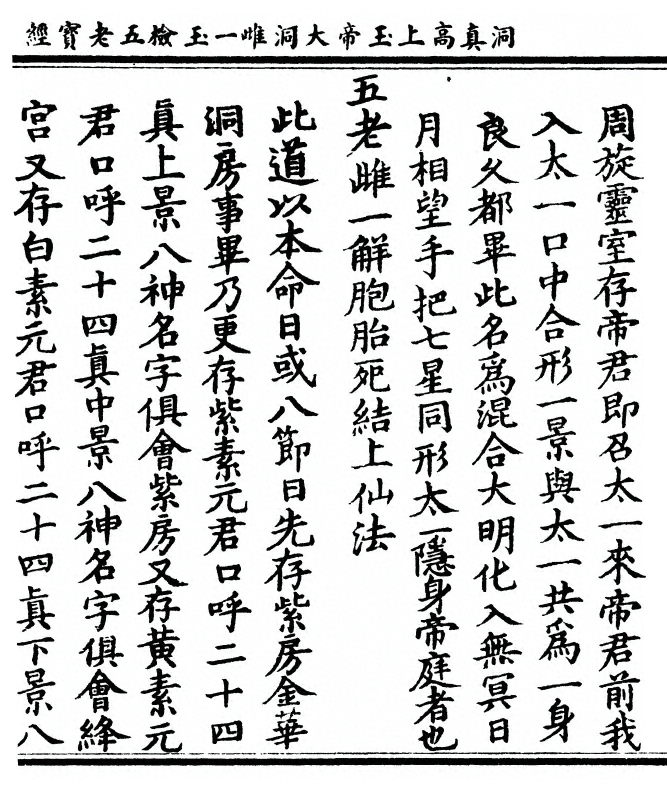 洞真高上玉帝大洞雌一玉檢五老寶經
周旋靈室存帝君即召太一來帝君前我
入太一口中合形一景與太一共爲一身
良久都畢此名爲混合大明化入無冥日
月相望手把七星同形太一隱身帝庭者也
五老雌一解胞胎死結上仙法
此道以本命日或八節日先存紫房金華
洞房事畢乃更存紫素元君口呼二十四
眞上景八神名字俱會紫房又存黃素元
君口呼二十四眞中景八神名字俱會絳
宮又存白素元君口呼二十四眞下景八